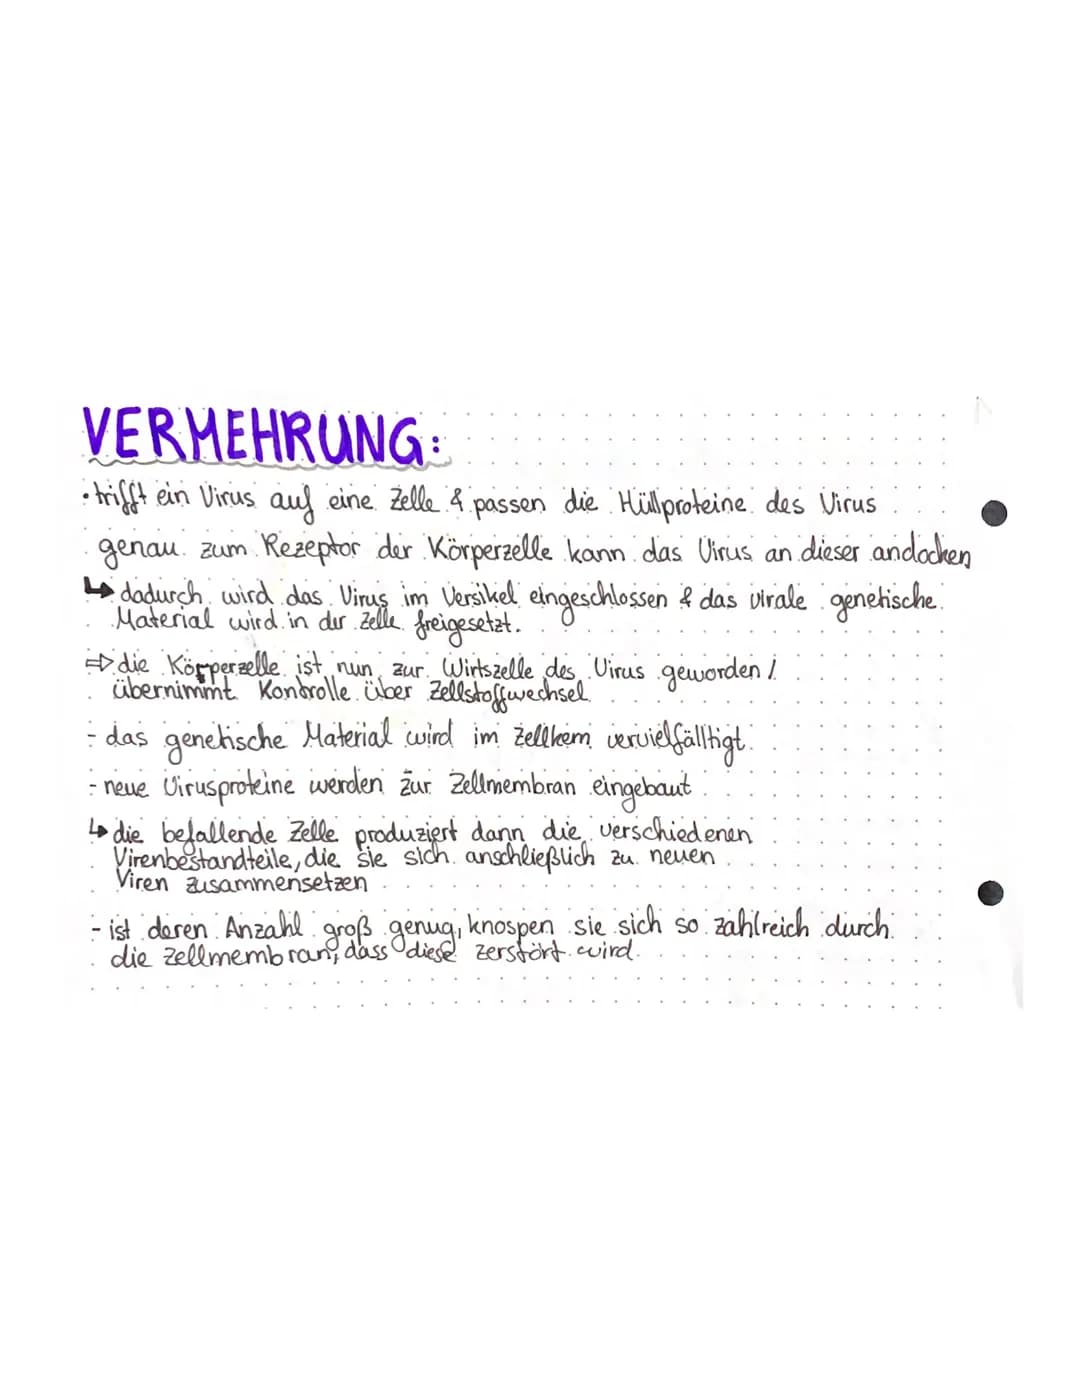 VERMEHRUNG:
• trifft ein Virus auf eine Zelle & passen die Hüllproteine des Virus
genau zum Rezeptor der Körperzelle kann das Virus an dieser andocken
↳ dadurch wird das Virus im Versikel eingeschlossen & das virale genetische
Material wird in der Zelle freigesetzt.
⇒ die Körperzelle ist nun zur Wirtszelle des Virus geworden /
übernimmt Kontrolle über Zellstoffwechsel
- das genetische Material wird im Zellkern vervielfälltigt.
- neue Virusproteine werden zur Zellmembran eingebaut
↳ die befallende Zelle produziert dann die verschiedenen
Virenbestandteile, die sie sich anschließlich zu neuen
Viren zusammensetzen
- ist deren Anzahl groß genug, knospen sie sich so zahlreich durch
die Zellmembran, dass diese zerstört wird.